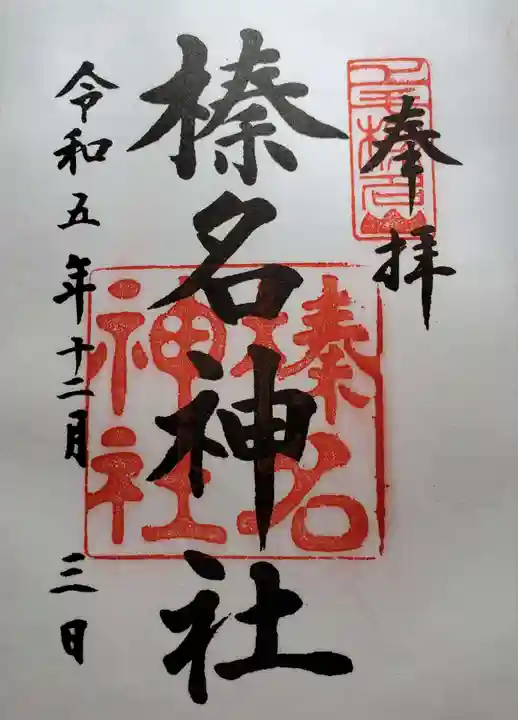 奉拝
榛名神社
榛名神社
令和五年十二月三日